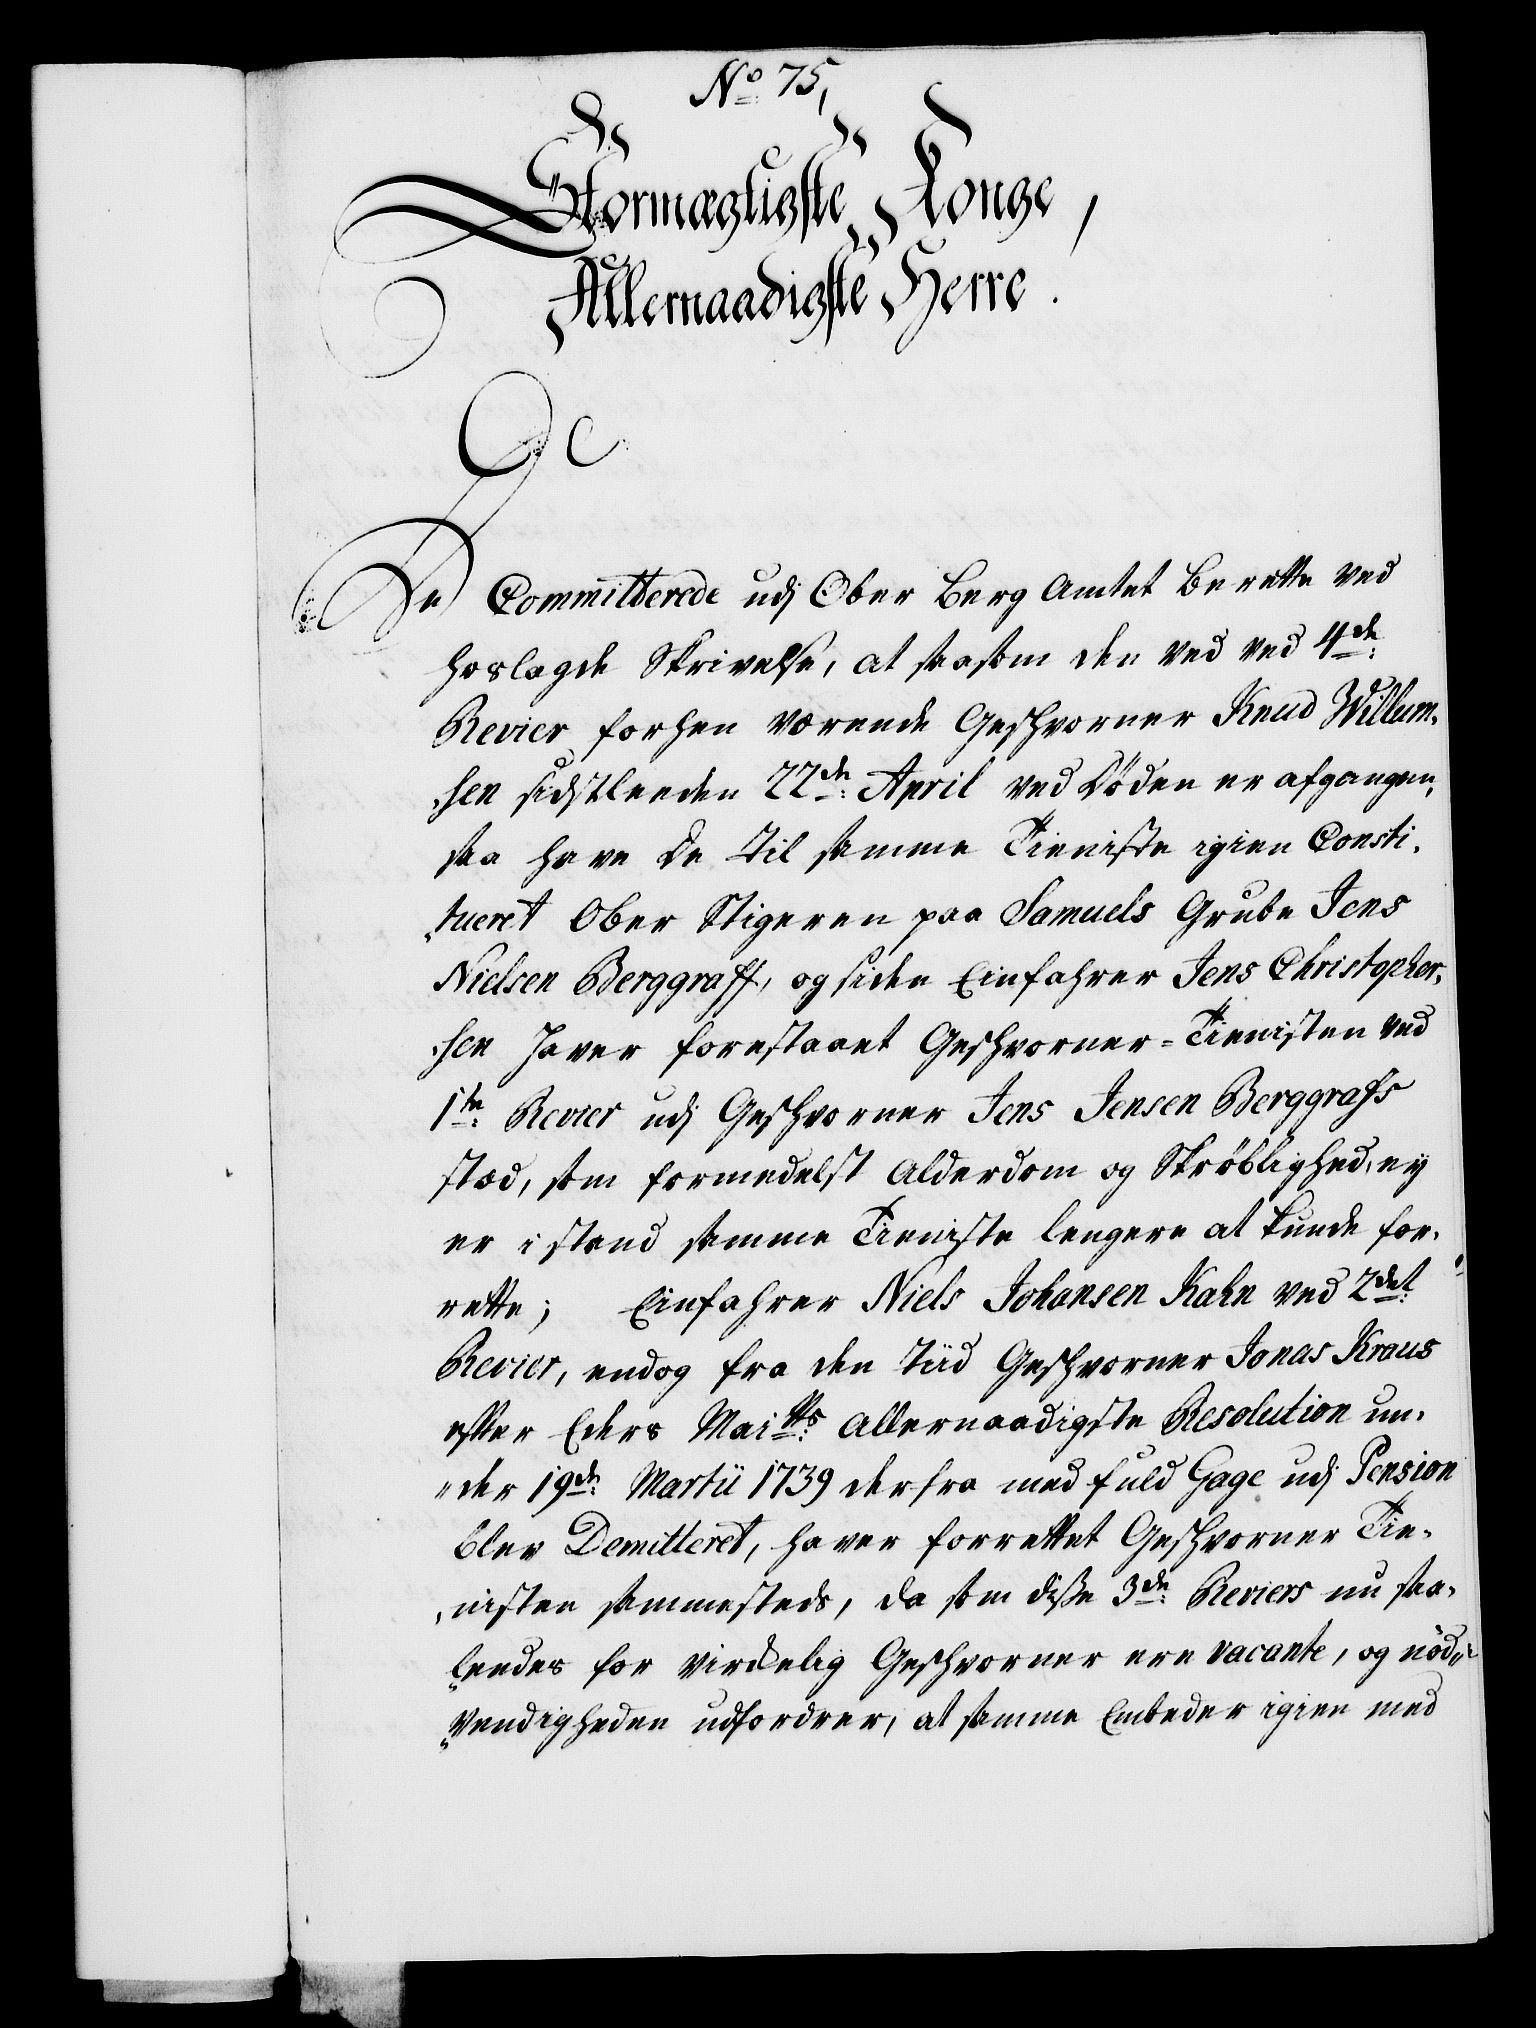 No 75,
Stormægtigste Konge,
Allernaadigste Herre.
De Committerede udj Ober Berg Amtet berette ved
hoslagde Skrivelse, at saasom den ved ved 4de
Revier forhen værende Geschvorner Knud Willum-
sen sidstleeden 22de April ved Døden er afgangen,
saa have de til samme Tieniste igien Consti-
tueret Ober Stigeren paa Samuels Grube Jens
Nielsen Berggraff, og siden Einfahrer Jens Christopher-
sen haver forestaaet Geschvorner-Tienisten ved
1te Revier udj Geschvorner Jens Jensen Berggrafs
stæd, som formedelst Alderdom og Skrøblighed, ey
er i stand samme Tieniste lengere at kunde for-
rette; Einfahrer Niels Johansen Kahn ved 2det
Revier, endog fra den tiid Geschvorner Jonas Kraus
efter Eders Maitts Allernaadigste Resolution un-
der 19de Martii 1739 derfra med fuld Gage udj Pension
blev Demitteret, haver forrettet Geschvorner Tie-
nisten sammesteds, da som disse 3de Reviers nu saa-
leedes for virkelig Geschvorner ere vacante, og nød-
vendigheden udfordrer, at samme Embeder igien med